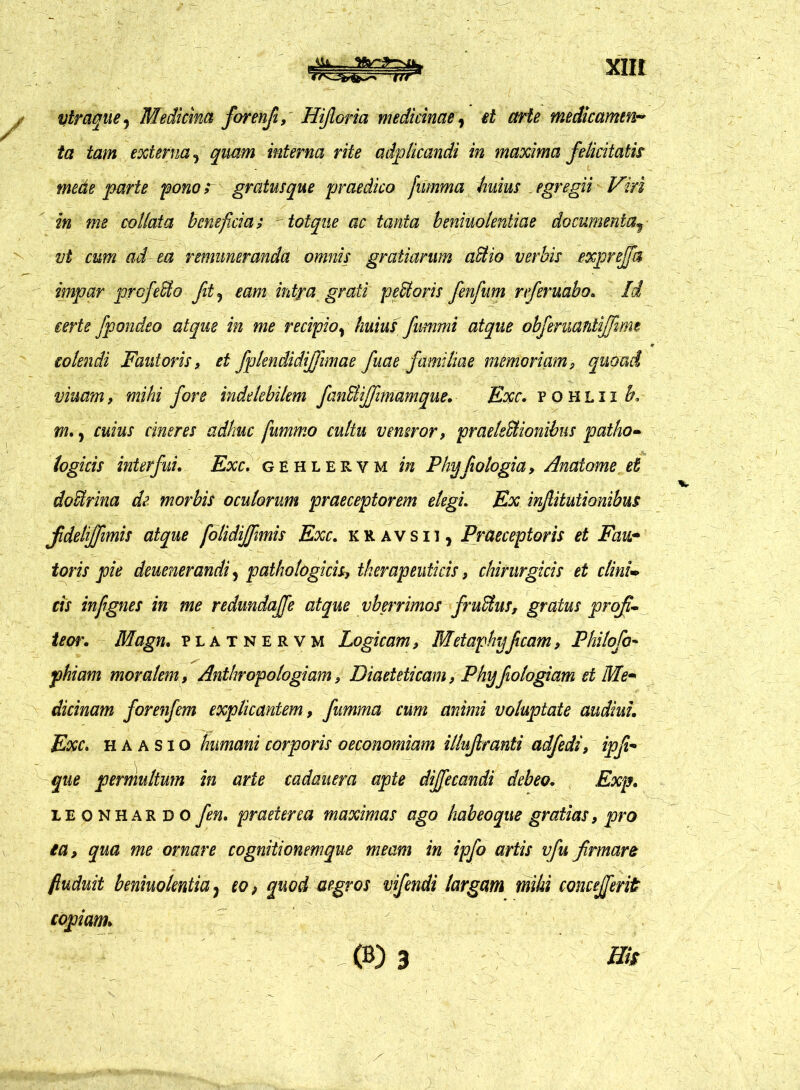 XIII
vtraque, Medicina forenſi, Hiſtoria medicinae, et arte medicamen-
ta tam externa, quam interna rite adplicandi in maxima felicitatis
meae parte pono; gratusque praedico ſumma huius egregii Viri
in me collata beneficia; totque ac tanta beniuolentiae documenta,
vt cum ad ea remuneranda omnis gratiarum actio verbis expreſſa
impar profecto ſit, eam intra grati pectoris ſenſum reſeruabo. Id
certe ſpondeo atque in me recipio, huius ſummi atque obſeruantiſſime
colendi Fautoris, et ſplendidiſſimae ſuae familiae memoriam, quoad
viuam, mihi fore indelebilem ſanctiſſimamque. Exc. POHLII b.
m., cuius cineres adhuc ſummo cultu veneror, praelectionibus patho-
logicis interfui. Exc. GEHLERVM in Phyſiologia, Anatome et
doctrina de morbis oculorum praeceptorem elegi. Ex inſtitutionibus
fideliſſimis atque ſolidiſſimis Exc. KRAVSII, Praeceptoris et Fau-
toris pie deuenerandi, pathologicis, therapeuticis, chirurgicis et clini-
cis inſignes in me redundaſſe atque vberrimos fructus, gratus profi-
teor. Magn. PLATNERVM Logicam, Metaphyſicam, Philoſo-
phiam moralem, Anthropologiam, Diaeteticam, Phyſiologiam et Me-
dicinam forenſem explicantem, ſumma cum animi voluptate audiui.
Exc. HAASIO humani corporis oeconomiam illuſtranti adſedi, ipſi-
que permultum in arte cadauera apte diſſecandi debeo. Exp.
LEONHARDO ſen. praeterea maximas ago habeoque gratias, pro
ea, qua me ornare cognitionemque meam in ipſo artis vſu firmare
ſtuduit beniuolentia, eo, quod aegros viſendi largam mihi conceſſerit
copiam.
(B) 3
His